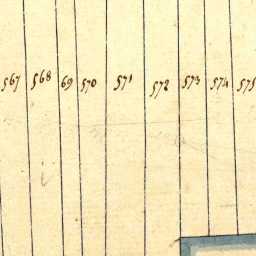 567 568 69 570 571 572 573 574 575